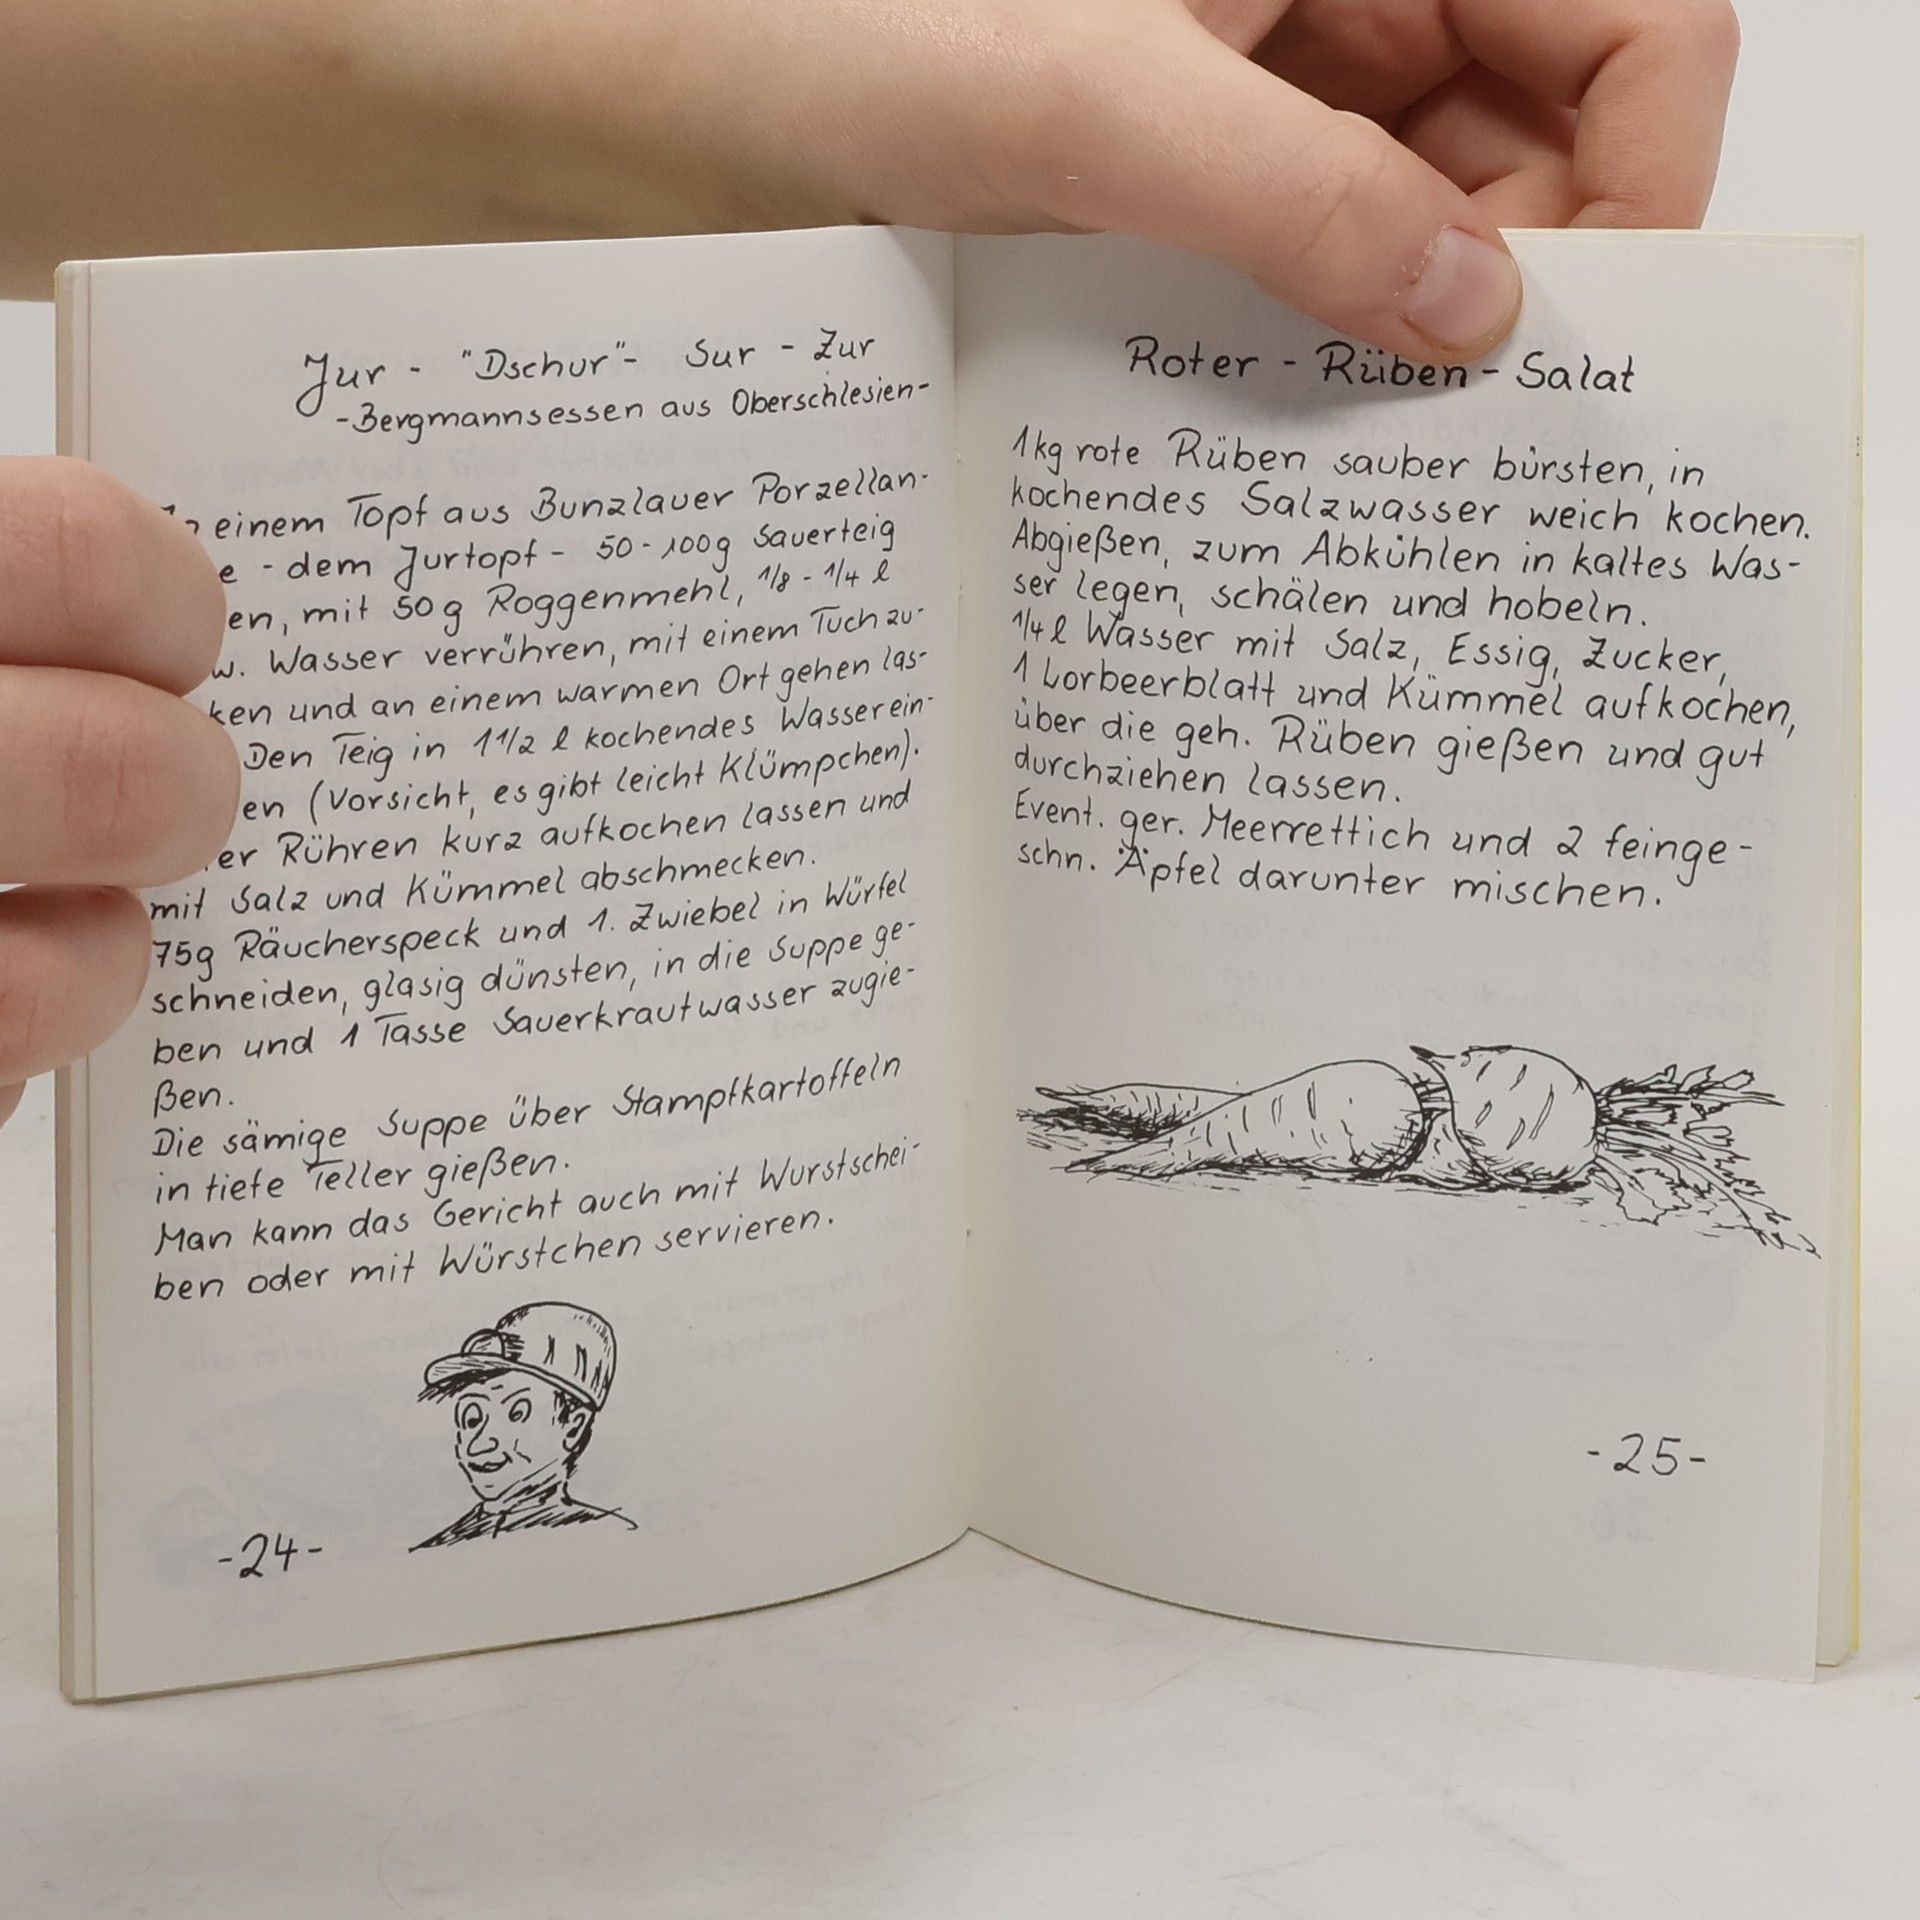 Jur - "Dschur" - Sur - Zur
-Bergmannsessen aus Oberschlesien-
einem Topf aus Bunzlauer Porzellan-
e - dem Jurtopf - 50-100g Sauerteig
en, mit 50g Roggenmehl, 1/8 - 1/4 l
w. Wasser verrühren, mit einem Tuch zu-
ken und an einem warmen Ort gehen las-
Den Teig in 1 1/2 l kochendes Wasser ein-
en (Vorsicht, es gibt leicht Klümpchen).
er Rühren kurz aufkochen lassen und
mit Salz und Kümmel abschmecken.
75g Räucherspeck und 1. Zwiebel in Würfel
schneiden, glasig dünsten, in die Suppe ge-
ben und 1 Tasse Sauerkrautwasser zugie-
ßen.
Die sämige Suppe über Stampfkartoffeln
in tiefe Teller gießen.
Man kann das Gericht auch mit Wurstschei-
ben oder mit Würstchen servieren.
-24-
Roter - Rüben - Salat
1kg rote Rüben sauber bürsten, in
kochendes Salzwasser weich kochen.
Abgießen, zum Abkühlen in kaltes Was-
ser legen, schälen und hobeln.
1/4 l Wasser mit Salz, Essig, Zucker,
1 Lorbeerblatt und Kümmel aufkochen,
über die geh. Rüben gießen und gut
durchziehen lassen.
Event. ger. Meerrettich und 2 feinge-
schn. Äpfel darunter mischen.
-25-